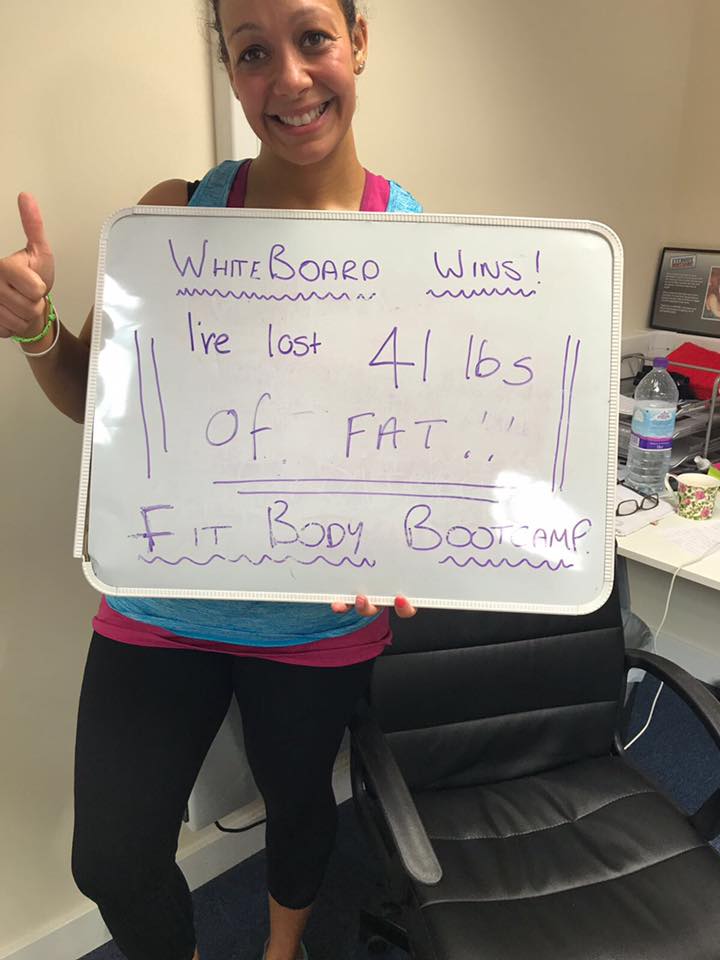 WHITEBOARD WINS!
I've lost 41 lbs
Of FAT!!!
FIT BODY BOOTCAMP.